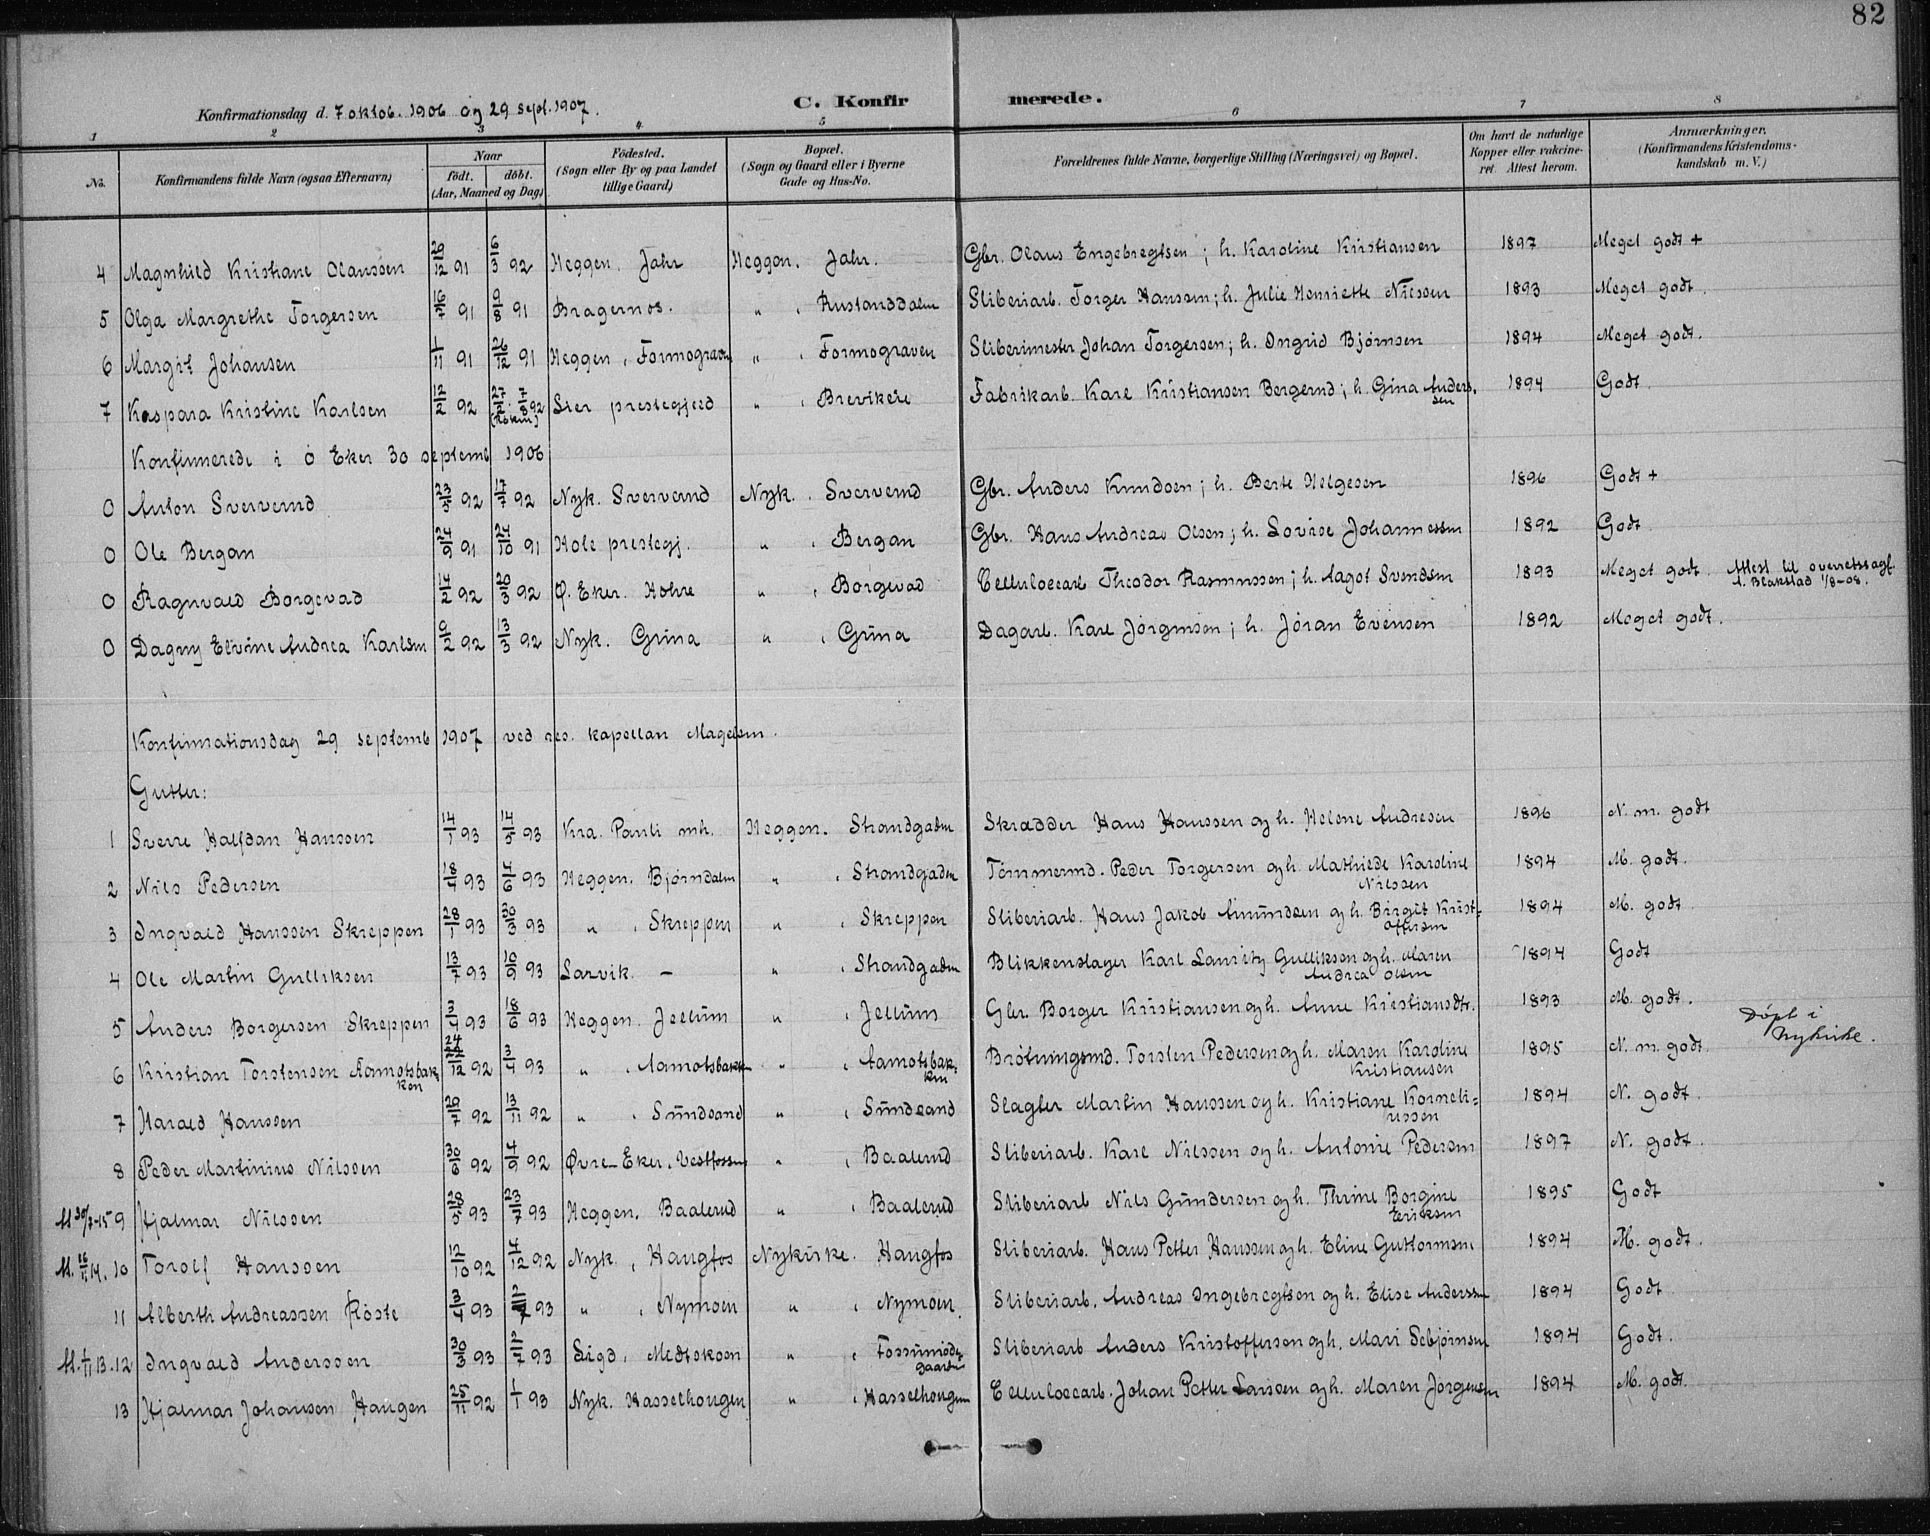 82
C. Konfirmerede.
Konfirmationsdag d. 7 oktob. 1906 og 29 sept. 1907.
1 2 3 4 5 6 7 8
No. Konfirmandens fulde Navn (ogsaa Efternavn) Naar født. døbt. (Aar, Maaned og Dag) Fødested. (Sogn eller By og paa Landet tillige Gaard) Bopæl. (Sogn og Gaard eller i Byerne Gade og Hus-No. Forældrenes fulde Navne, borgerlige Stilling (Næringsvei) og Bopæl. Om havt de naturlige Kopper eller vakcineret. Attest herom. Anmærkninger. (Konfirmandens Kristendomskundskab m. V.)
4 Magnhild Kristiane Olaussen 20/12 91 6/3 92 Heggen. Jahr Heggen. Jahr. Gbr. Olaus Engebregtsen ; h. Karoline Kristiansen 1897 Meget godt +
5 Olga Margrethe Torgersen 16/7 91 9/8 91 Bragernes. " , Rustanddalen Sliberiarb. Torger Hanssen; h. Julie Henriette Nilssen 1893 Meget godt.
6 Margit Johansen 1/11 91 26/12 91 Heggen , Formograven " , Formograven Sliberimester Johan Torgersen; h. Ingrid Bjørnsen 1894 Meget godt.
7 Kaspara Kristine Karlsen 12/2 92 27/2 7/8 92 Lier prestegjeld " , Brevikele Fabrikarb. Karl Kristiansen Bergerud; h. Gina Anderssen 1894 Godt.
Konfirmerede i Ö Eker 30 septemb 1906
0 Anton Sververud 23/5 92 17/7 92 Nyk. Sververud Nyk. , Sververud Gbr. Anders Knudsen; h. Berte Helgesen 1896 Godt +
0 Ole Bergan 24/9 91 24/10 91 Hole prestegj. " , Bergan Gbr. Hans Andreas Olsen; h. Lovise Johannessen 1892 Godt
0 Ragnvald Borgevad 14/2 92 20/3 92 Ø. Eker. Hohre " , Borgevad Cellulosearb Theodor Rasmussen; h. Aagot Svendsen 1893 Meget godt. Attest til overretssagf. A. Blakstad 1/8-08.
0 Dagny Elvine Andrea Karlsen 9/2 92 13/3 92 Nyk. Grina " , Grina Dagarb. Karl Jørgensen; h. Jøran Evensen 1892 Meget godt.
Konfirmationsdag 29 septemb 1907 ved res. kapellan Magelsen.
Gutter:
1 Sverre Halfdan Hanssen 14/1 93 14/5 93 Kra. Pauli mh. Heggen. Strandgaden Skrædder Hans Hanssen og h. Helene Andresen 1896 N. m. godt
2 Nils Pedersen 18/4 93 4/6 93 Heggen. Bjørndalen " , Strandgaden Tømmermd. Peder Torgersen og h. Mathilde Karoline Nilssen 1894 M. godt.
3 Ingvald Hanssen Skreppen 28/1 93 30/3 93 " , Skreppen " , Skreppen Sliberiarb. Hans Jakob Amundsen og h. Birgit Kristoffersen 1894 M. godt.
4 Ole Martin Gulliksen 13/7 93 10/9 93 Larvik. – " , Strandgaden Blikkenslager Karl Lauritz Gulliksen og h. Maren Andrea Olsen 1894 Godt
5 Anders Borgersen Skreppen 3/4 93 18/6 93 Heggen. Jellum " , Jellum Gbr. Borger Kristiansen og h. Anne Kristiansdtr. 1893 M. godt.
6 Kristian Torstensen Aamotsbakken 24/12 92 3/4 93 " , Aamotsbakken " , Aamotsbakken Brøtningsmd. Torsten Pedersen og h. Maren Karoline Kristiansen 1895 N. m. godt Døpt i Nykirke.
7 Harald Hanssen 20/7 92 13/11 92 " , Sundsand " , Sundsand Slagter Martin Hanssen og h. Kristiane Korneliussen 1894 N. godt.
8 Peder Martinius Nilssen 30/6 92 4/9 92 Øvre-Eker. Vestfossen " , Baalerud Sliberiarb. Karl Nilssen og h. Antonie Pedersen 1897 N. godt.
M 30/7-15 9 Hjalmar Nilssen 28/5 93 23/7 93 Heggen. Baalerud " , Baalerud Sliberiarb Nils Gundersen og h. Thrine Borgine Eriksen 1895 Godt
M. 14. 10 Torolf Hanssen 12/10 92 4/12 92 Nyk. , Haugfos Nykirke. Haugfos Sliberiarb. Hans Petter Hanssen og h. Eline Guttormsen 1894 M. godt.
11 Alberth Andreassen Røste 3/4 93 93 " , Nymoen " , Nymoen. Sliberiarb. Andreas Ingebregtsen og h. Elise Anderssen 1894 Godt
M. 1/11 13. 12 Ingvald Anderssen 30/3 93 2/7 93 Sigd. , Medtskoen " , Fossumødegaarden Sliberiarb Anders Kristoffersen og h. Mari Sebjørnsen 1894 Godt.
13 Hjalmar Johansen Haugen 25/11 92 1/1 93 Nyk. Hasselhougen " , Hasselhougen Cellulosearb. Johan Petter Larssen og h. Maren Jørgensen 1894 M. godt.